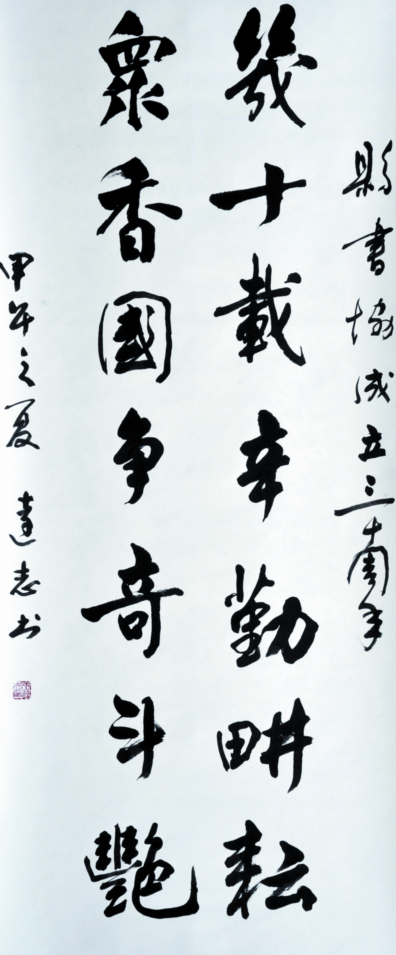 縣書協成立三十周年
幾十載辛勤畊耘
衆香國争奇斗艷
甲午之夏 達志书